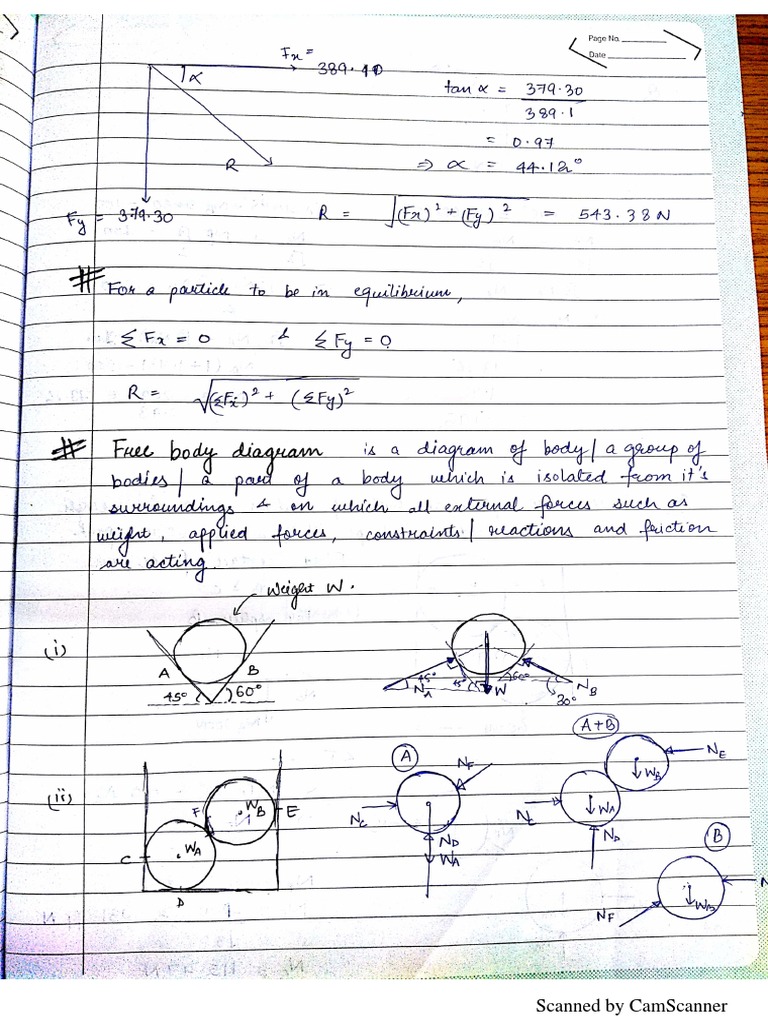 Page No.
Date
Fx =
389.10
α
R
Fy = 379.30
tan α = 379.30
389.1
= 0.97
⇒ α = 44.12°
R = √(Fx)² + (Fy)² = 543.38 N
# For a particle to be in equilibrium,
ΣFx = 0 & ΣFy = 0
R = √(ΣFx)² + (ΣFy)²
# Free body diagram is a diagram of body/ a group of
bodies/ a part of a body which is isolated from it's
surroundings & on which all external forces such as
weight, applied forces, constraints/ reactions and friction
are acting
Weight W.
(i)
A B
45° 60°
45° NA 45° W 60° NB
30°
(ii)
C WA F WB E
D
A
NF
NC
ND
WA
A+B
NE
WB
WA
ND
B
WB
NF
Scanned by CamScanner